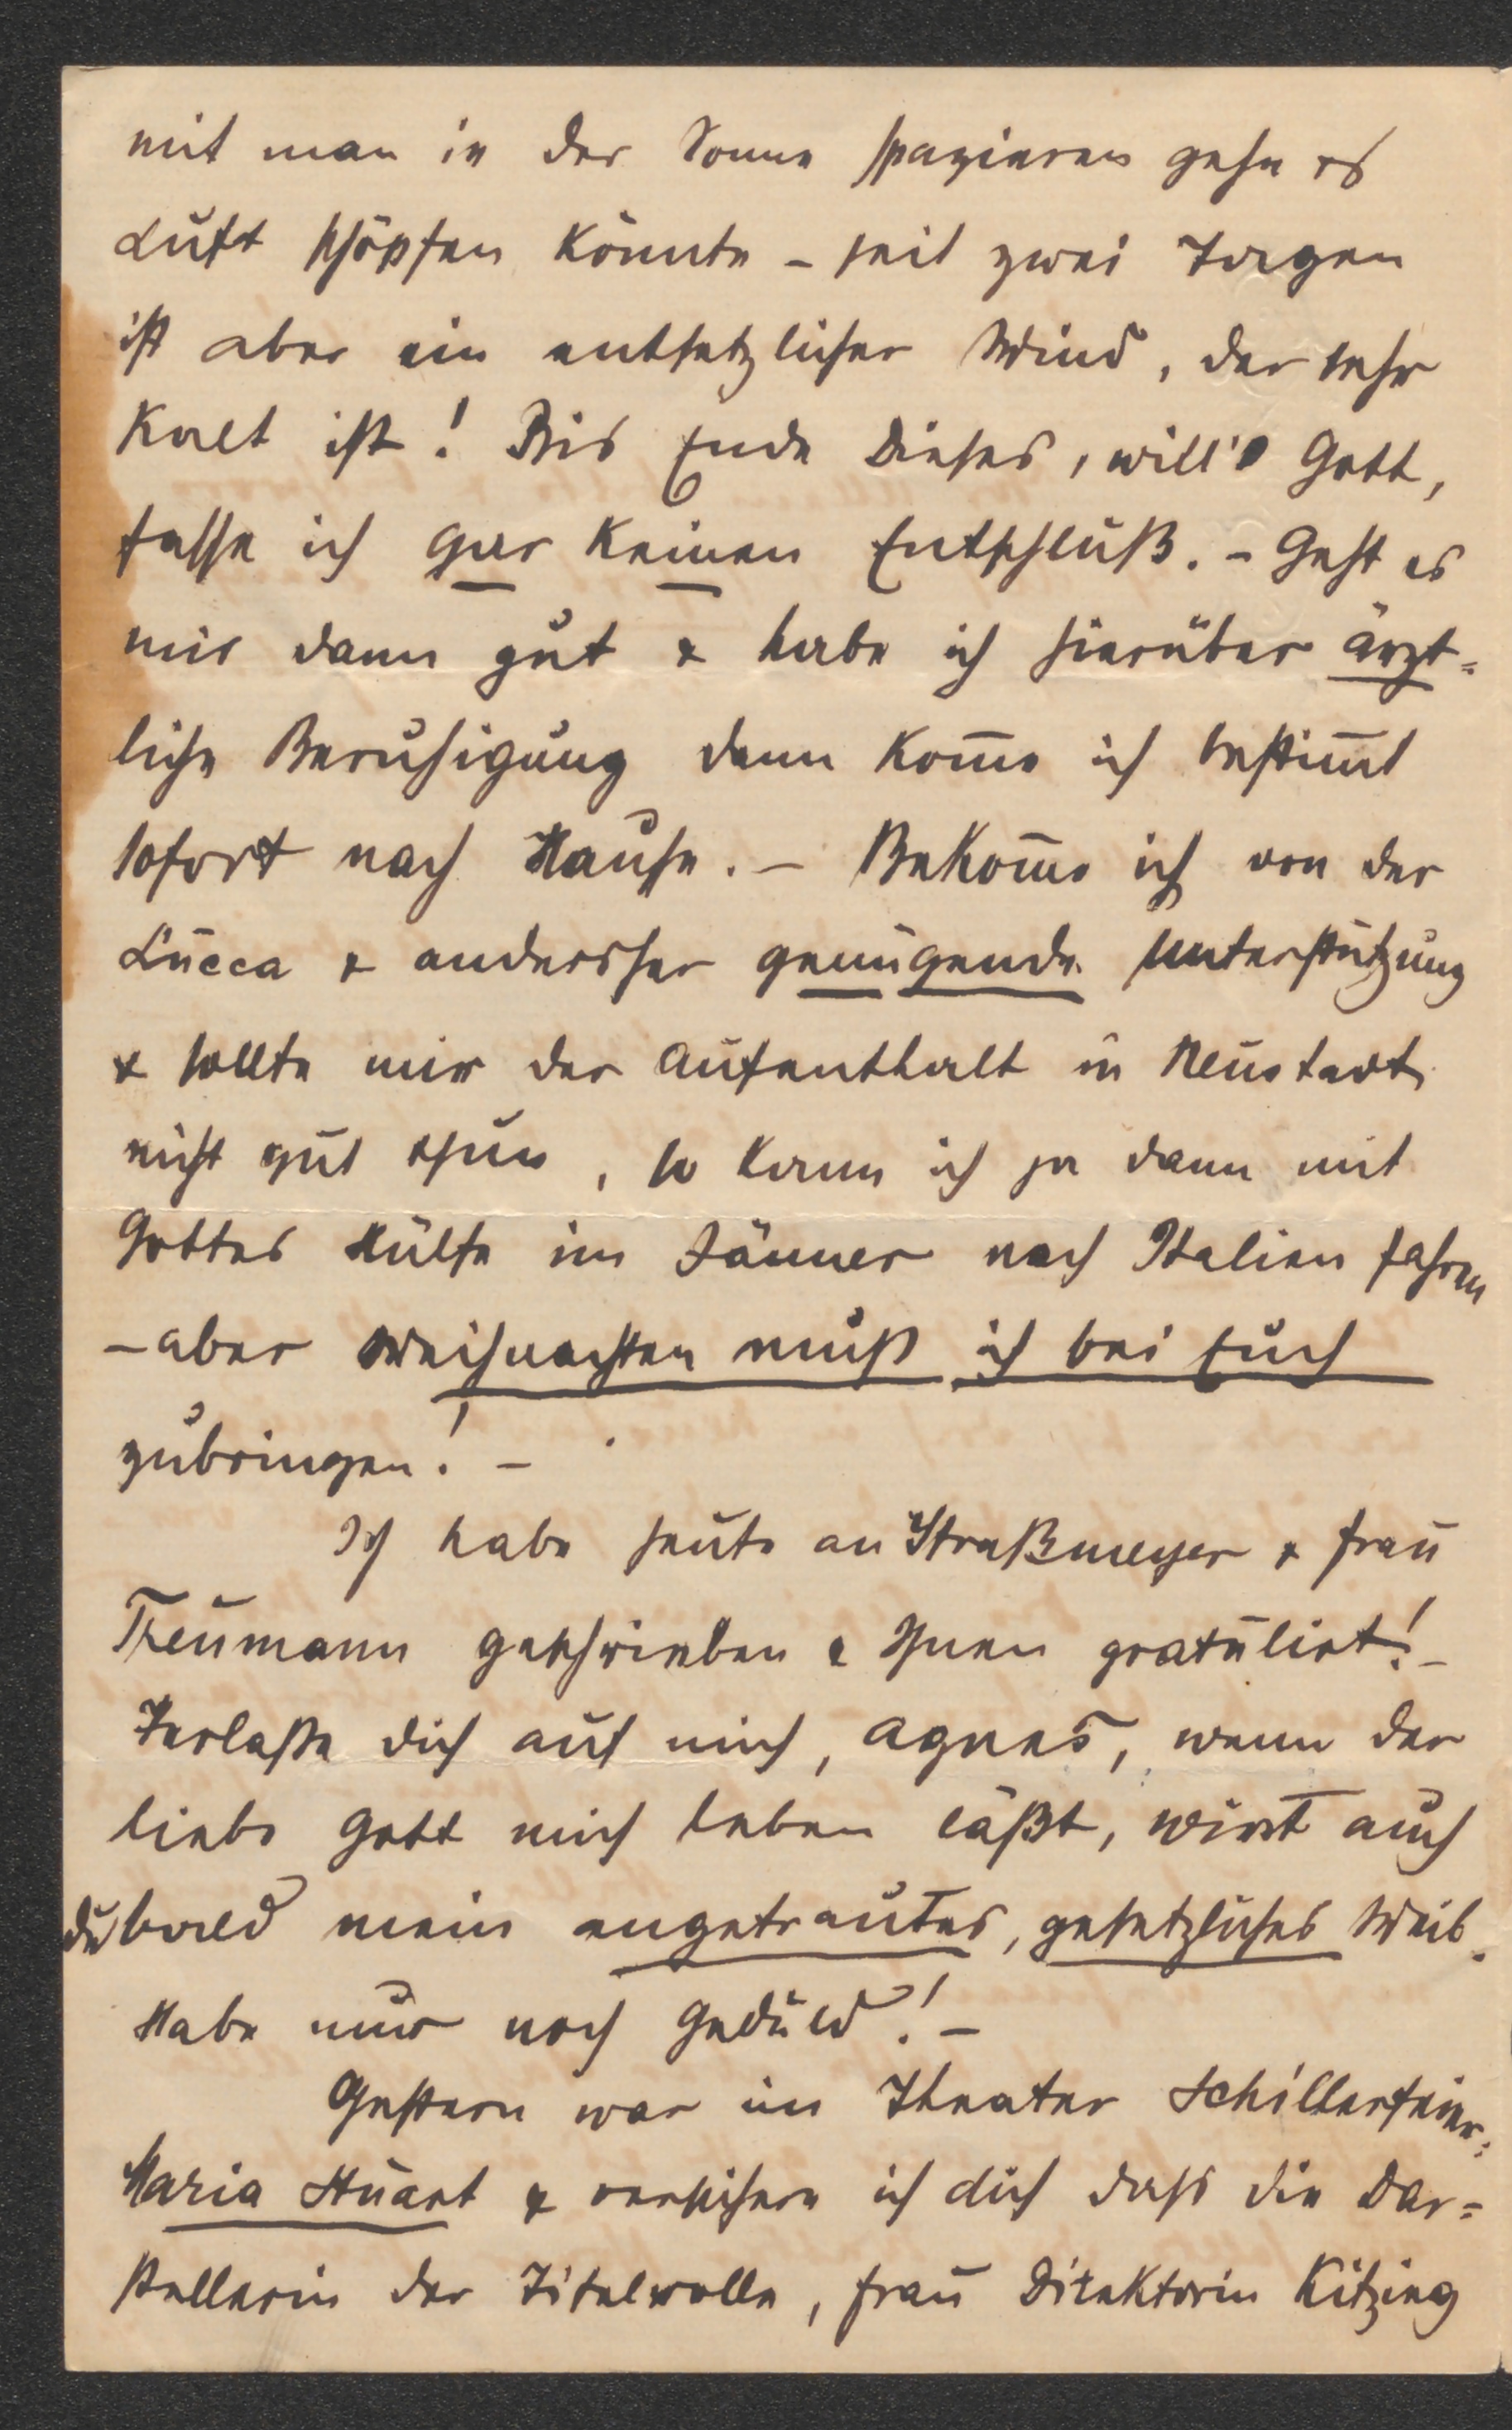 mit man in der Sonne spazieren gehn &
Luft schöpfen könnte – seit zwei Tagen
ist aber ein entsetzlicher Wind, der sehr
kalt ist! Bis Ende dieses, will's Gott,
fasse ich gar keinen Entschluß. – Geht es
mir dann gut & habe ich hierüber ärzt=
liche Beruhigung dann kom̅e ich bestim̅t
sofort nach Hause. – Bekom̅e ich von der
Lucca & anderseher genügende Unterstützung
& sollte mir der Aufenthalt in Neustadt
nicht gut thun, so kann ich ja dann mit
Gottes Hülfe im Jänner nach Italien fahren
– aber Weihnachten muß ich bei Euch
zubringen! –
Ich habe heute an Straßmeyer & Frau
Treumann geschrieben & Ihnen gratulirt! –
Verlaße dich auf mich, Agnes, wenn der
liebe Gott mich leben läßt, wirst auch
du bald mein angetrautes, gesetzliches Weib.
Habe nur noch Geduld! –
Gestern war im Theater Schillerfeier:
Maria Stuart & versichere ich dich daß die Dar=
stellerin der Titelrolle, Frau Direktorin Kitzing